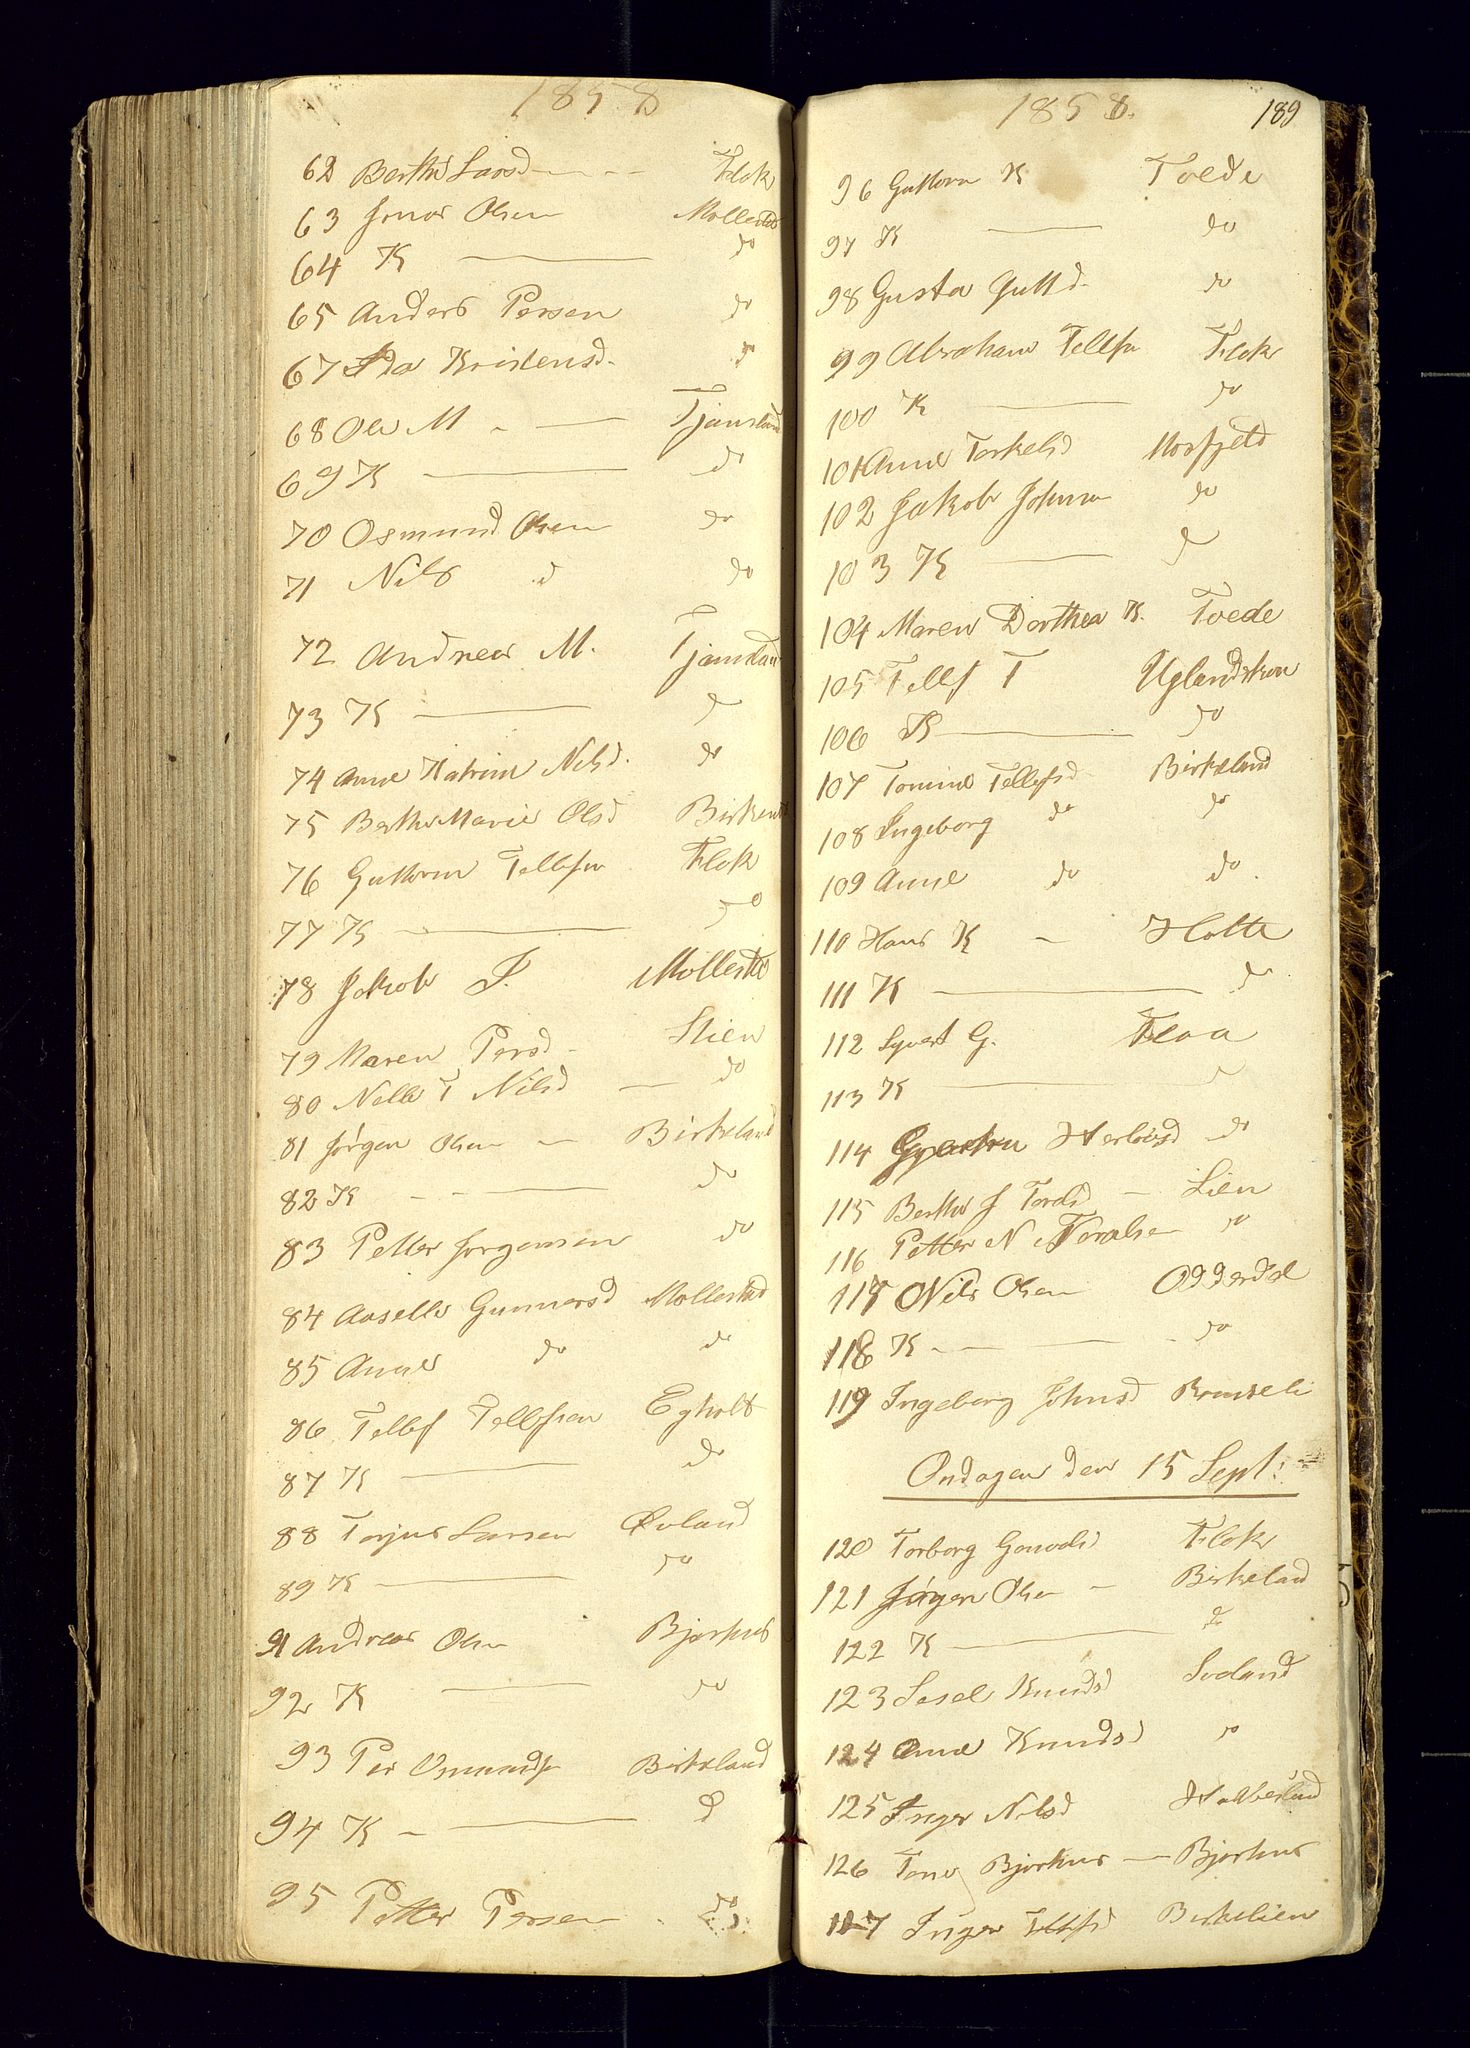 1858
62 Berthe Larsd — Flak
63 Jonas Olsen Mollestad
64 K — do
65 Anders Persen do
67 Ida Kristensd. do
68 Ole M — Tjomsland
69 K — do
70 Osmund Olsen do
71 Nils d do
72 Andreas M. Tjomsland
73 K — do
74 Anne Katrine Nilsd. do
75 Berthe Marie Olsd
76 Guttorm Tellefsen Flak
77 K — do
78 Jakob J. Mollestad
79 Maren Persd — Stien
80 T Nilsd — do
81 Jørgen Olsen — Birkeland
82 K — do
83 Petter Jørgensen do
84 Aaselle Gunnarsd Mollestad
85 Anne do do
86 Tellef Tellefsen Egholt
87 K — do
88 Torjus Larsen Øvland
89 K — do
91 Andreas Olsen Bjorhus
92 K — do
93 Per Osmundsen Birkeland
94 K — do
95 Petter Persen do
1858.
189
96 Guttorm K Tvede
97 K — do
98 Gusta Guttd. do
99 Abraham Tellfsn Flak
100 K — do
101 Anne Torkelsd Mosfjeld
102 Jakob Johnsen do
103 K — do
104 Maren Dorthea K. Tvede
105 Tellf T
106 K — do
107 Tomine Tellefsd Birkeland
108 Ingeborg do do
109 Anne do do
110 Hans K — Holte
111 K — do
112 Syvert G. Flaa
113 K — do
114 Herlovsd do
115 Berthe J Tordsd — Lien
116 Petter N do
117 Nils Olsen Oggerdal
118 K — do
119 Ingeborg Johnsd
Ondagen den 15 Sept:
120 Torborg Flak
121 Jørgen Olsen — Birkeland
122 K — do
123 Sesel Knudsd Sveland
124 Anne Knudsd do
125 Inger Nilsd
126 Tone Bjorhus — Bjorhus
127 Inger Tellefsd Birkelien